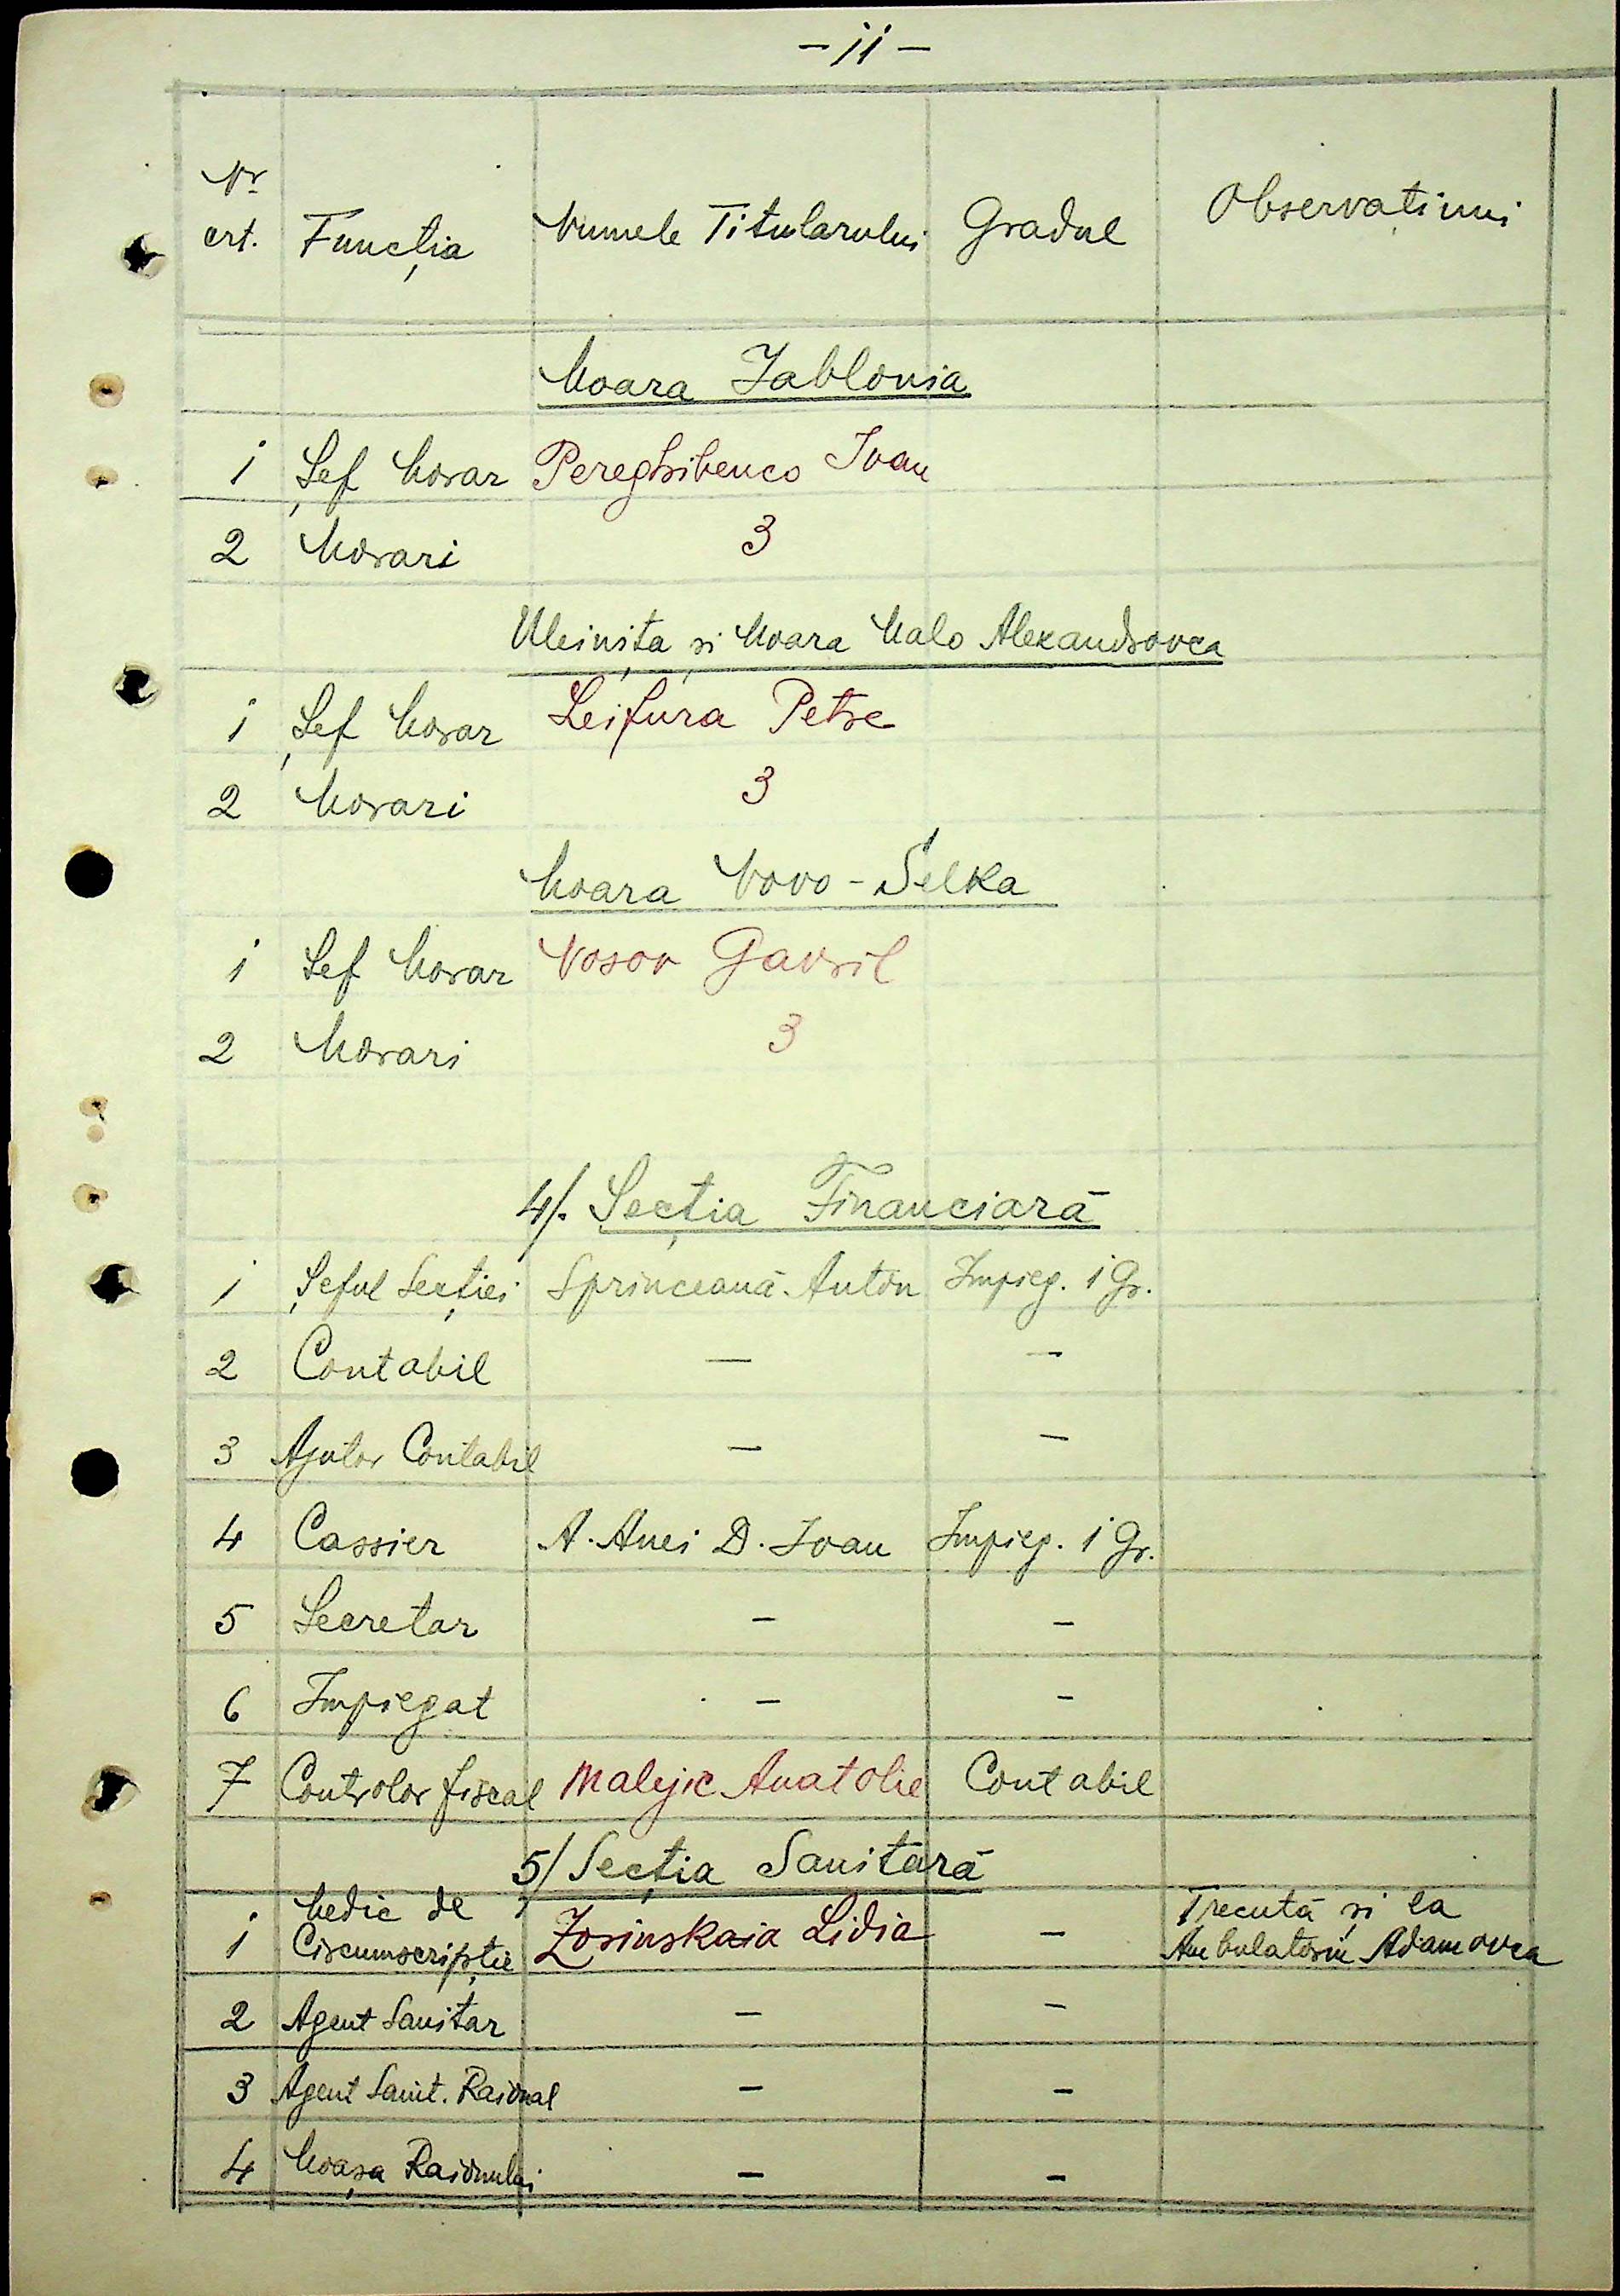 - 11 -
Nr crt. Funcția Numele Titularului Gradul Observațiuni
Moara Jablonia
1 Șef Morar Pereghibenco Ivan
2 Morari 3
Uleinița și Moara Malo Alexandrovca
1 Șef Morar Leifura Petre
2 Morari 3
Moara Novo-Selka
1 Sef Morar Nosov Gavril
2 Morari 3
4/. Secția Financiară
1 Șeful Secției Sprinceană Anton Impieg. 1 Gr.
2 Contabil — —
3 Ajutor Contabil — —
4 Cassier A. Anei D. Ioan Impieg. 1 Gr.
5 Secretar — —
6 Impiegat — —
7 Controlor fiscal Malejic Anatolie Contabil
5/ Secția Sanitară
1 Medic de Circumscripție Zosinskaia Lidia — Trecută și la Ambulatoriu Adamovca
2 Agent Sanitar — —
3 Agent Sanit. Raional — —
4 Moașa Raionului — —